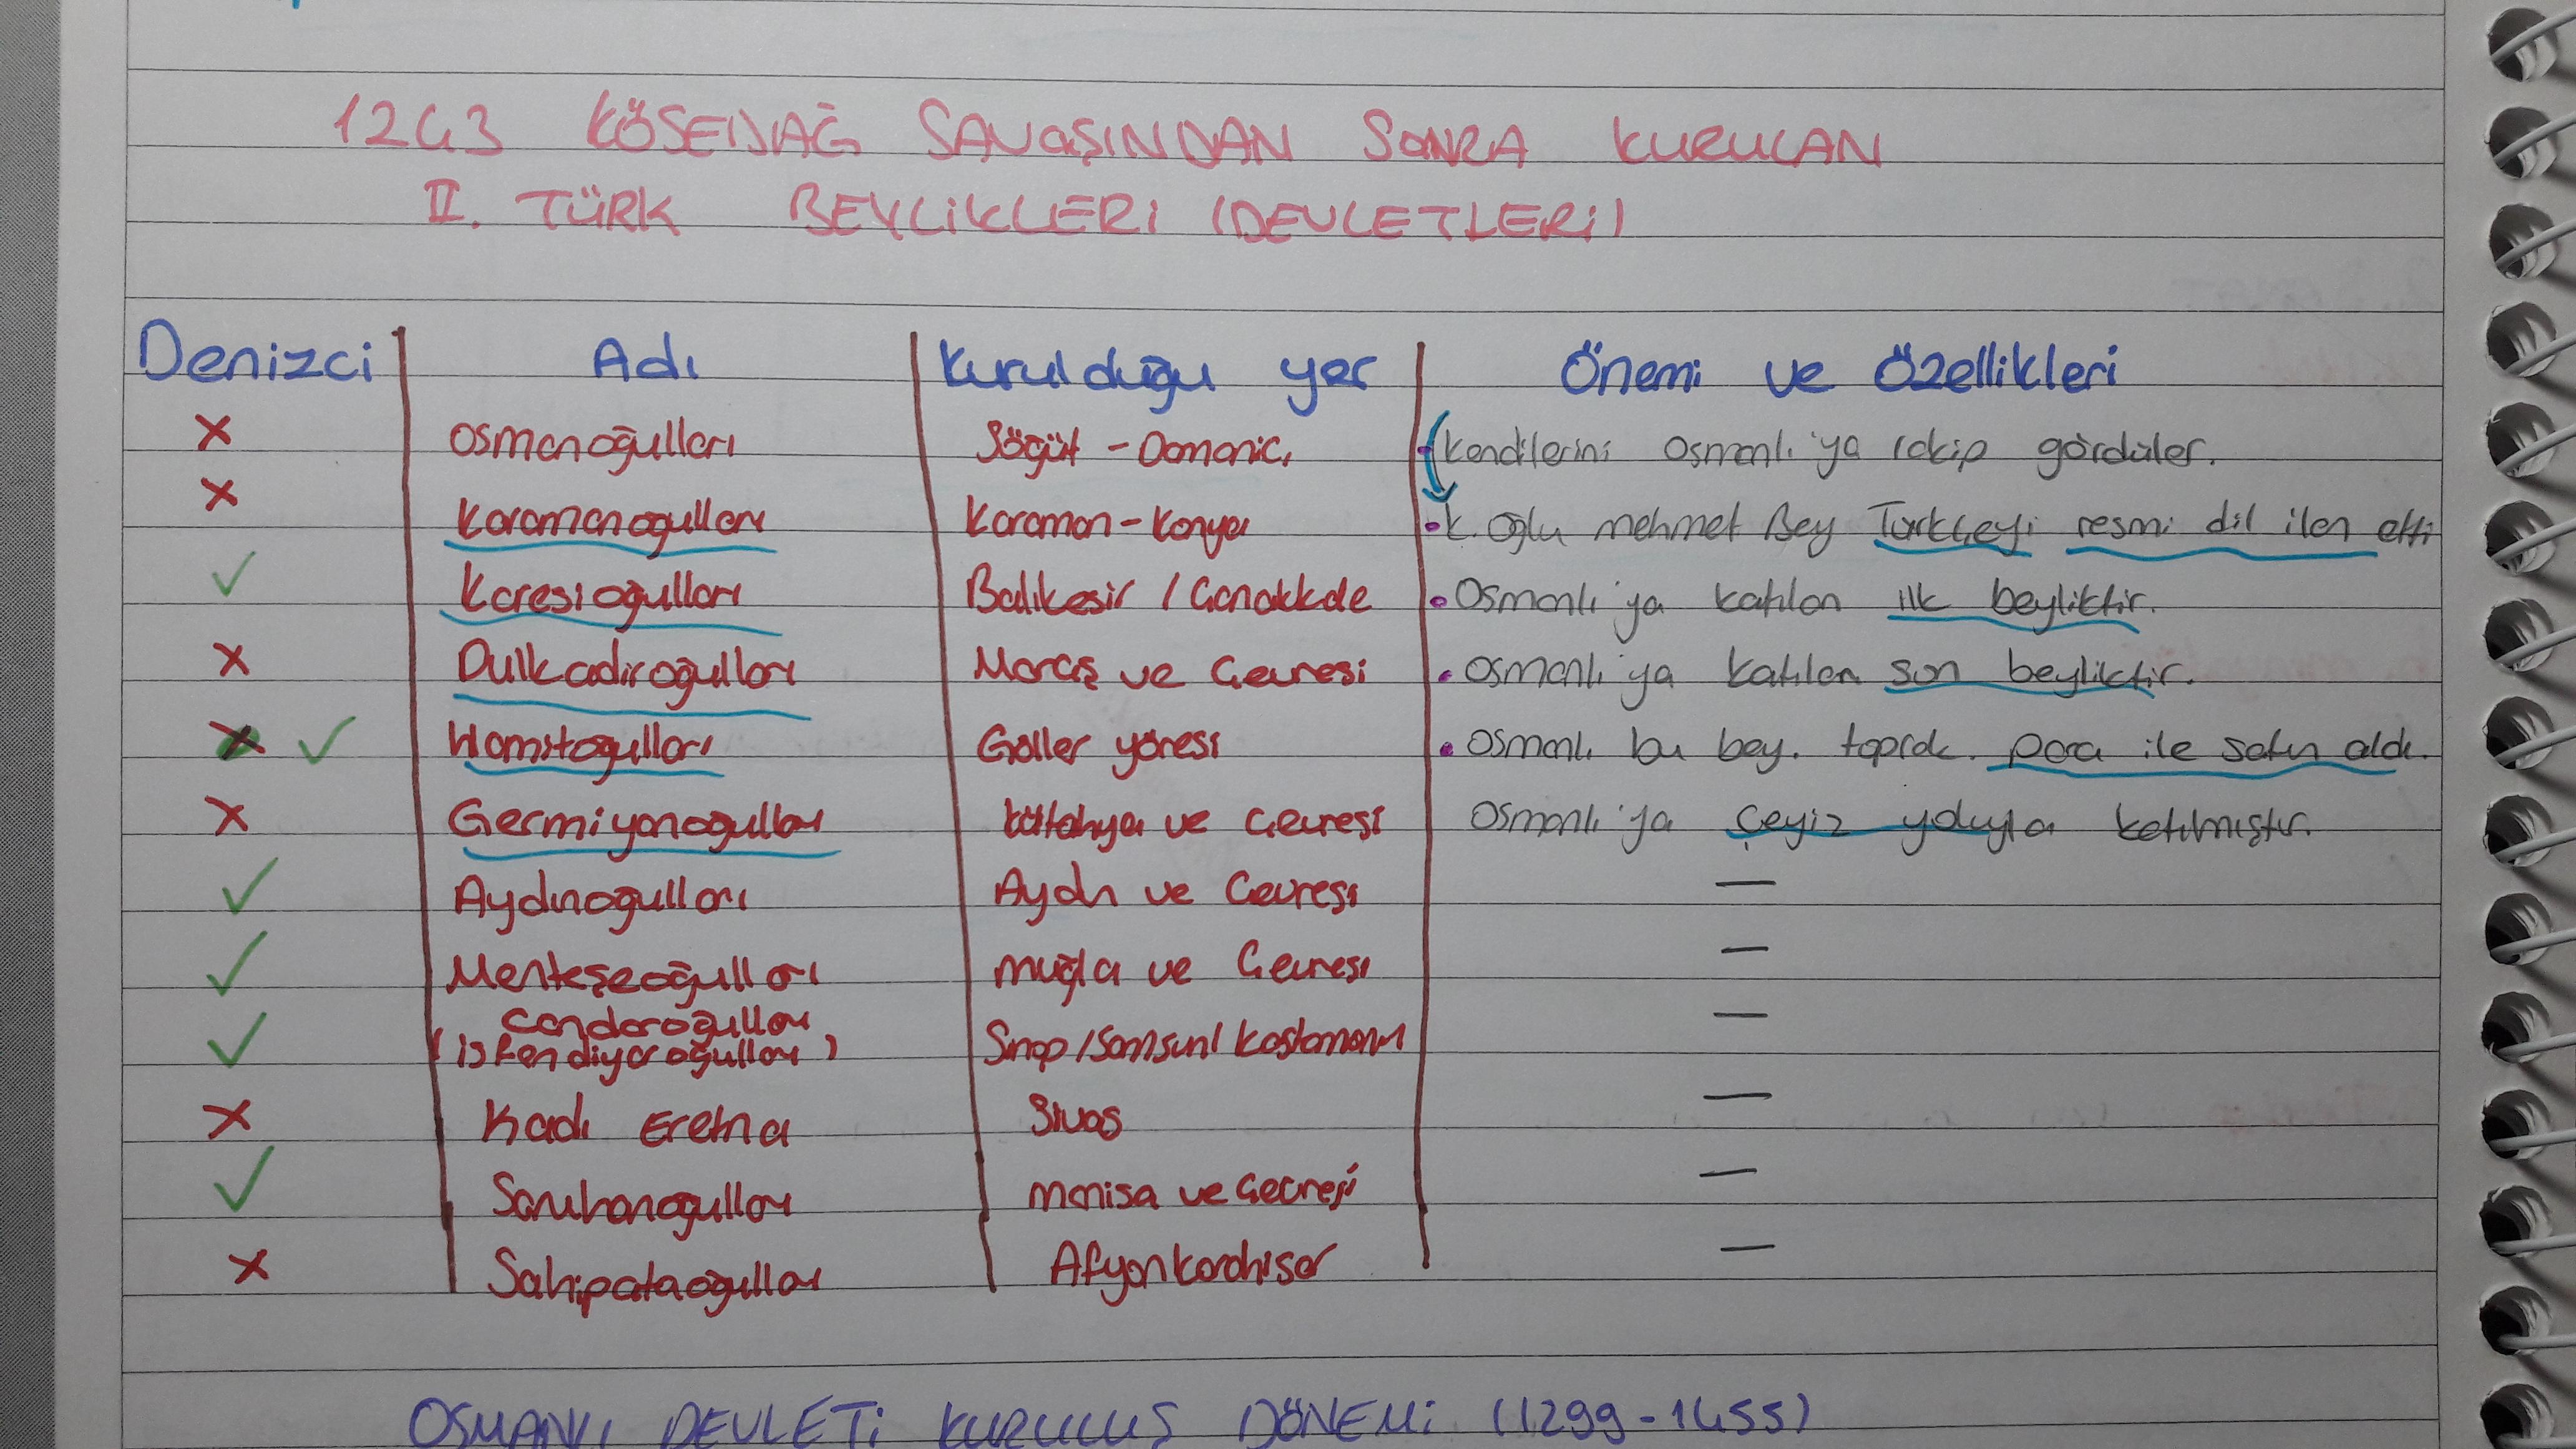 1243 KÖSEDAĞ SAVAŞINDAN SONRA KURULAN
II. TÜRK BEYLİKLERİ (DEVLETLERİ)
Denizci Adı Kurulduğu yer Önemi ve Özellikleri
X Osmanoğulları Söğüt - Domaniç (kendilerini Osmanlı'ya rakip gördüler.
X Karamanoğulları Karaman - Konya • K. oğlu mehmet Bey Türkçeyi resmi dil ilan etti
✓ Karesioğulları Balıkesir / Çanakkale • Osmanlı'ya katılan ilk beyliktir.
X Dulkadiroğulları Maraş ve Çevresi • Osmanlı'ya katılan son beyliktir.
X ✓ Hamitoğulları Göller yöresi • Osmanlı bu bey. toprak. para ile satın aldı.
X Germiyanoğulları Kütahya ve Çevresi Osmanlı'ya çeyiz yoluyla katılmıştır.
✓ Aydınoğulları Aydın ve Çevresi —
✓ Menteşeoğulları muğla ve Çevresi —
✓ Candaroğulları Sinop / Samsun / Kastamonu —
(isfendiyaroğulları)
X Kadı Eretna Sivas —
✓ Saruhanoğulları manisa ve Çevresi —
X Sahipataoğulları Afyonkarahisar —
OSMANLI DEVLETİ KURULUŞ DÖNEMİ (1299-1455)